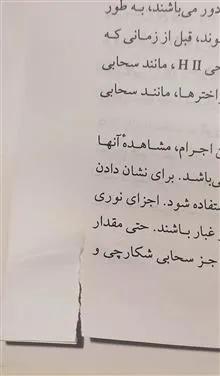 دور می‌باشند، به طور
وند، قبل از زمانی که
H II، مانند سحابی
اخترها، مانند سحابی
اجرام، مشاهدهٔ آنها
می‌باشد. برای نشان دادن
ستفاده شود. اجزای نوری
غبار باشند. حتی مقدار
جز سحابی شکارچی و